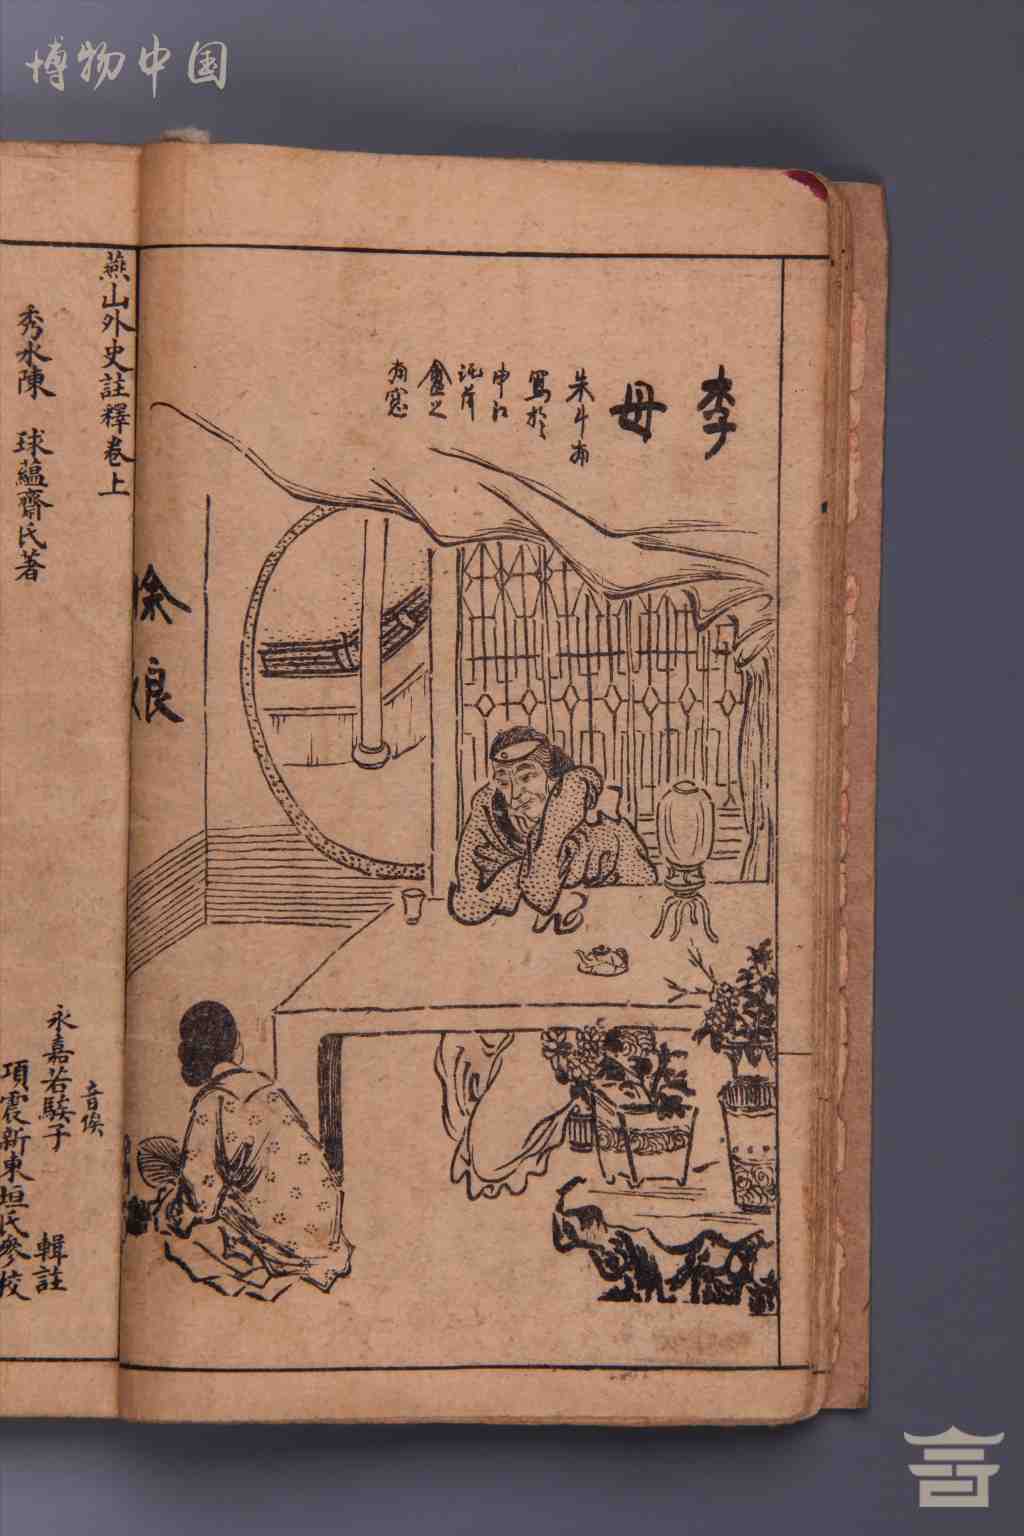 博物中国
李母
朱斗南
寫於
申江
徐娘
燕山外史註釋卷上
秀水陳 球蘊齋氏著
音俟
永嘉若騤子 輯註
項震新東垣氏參校